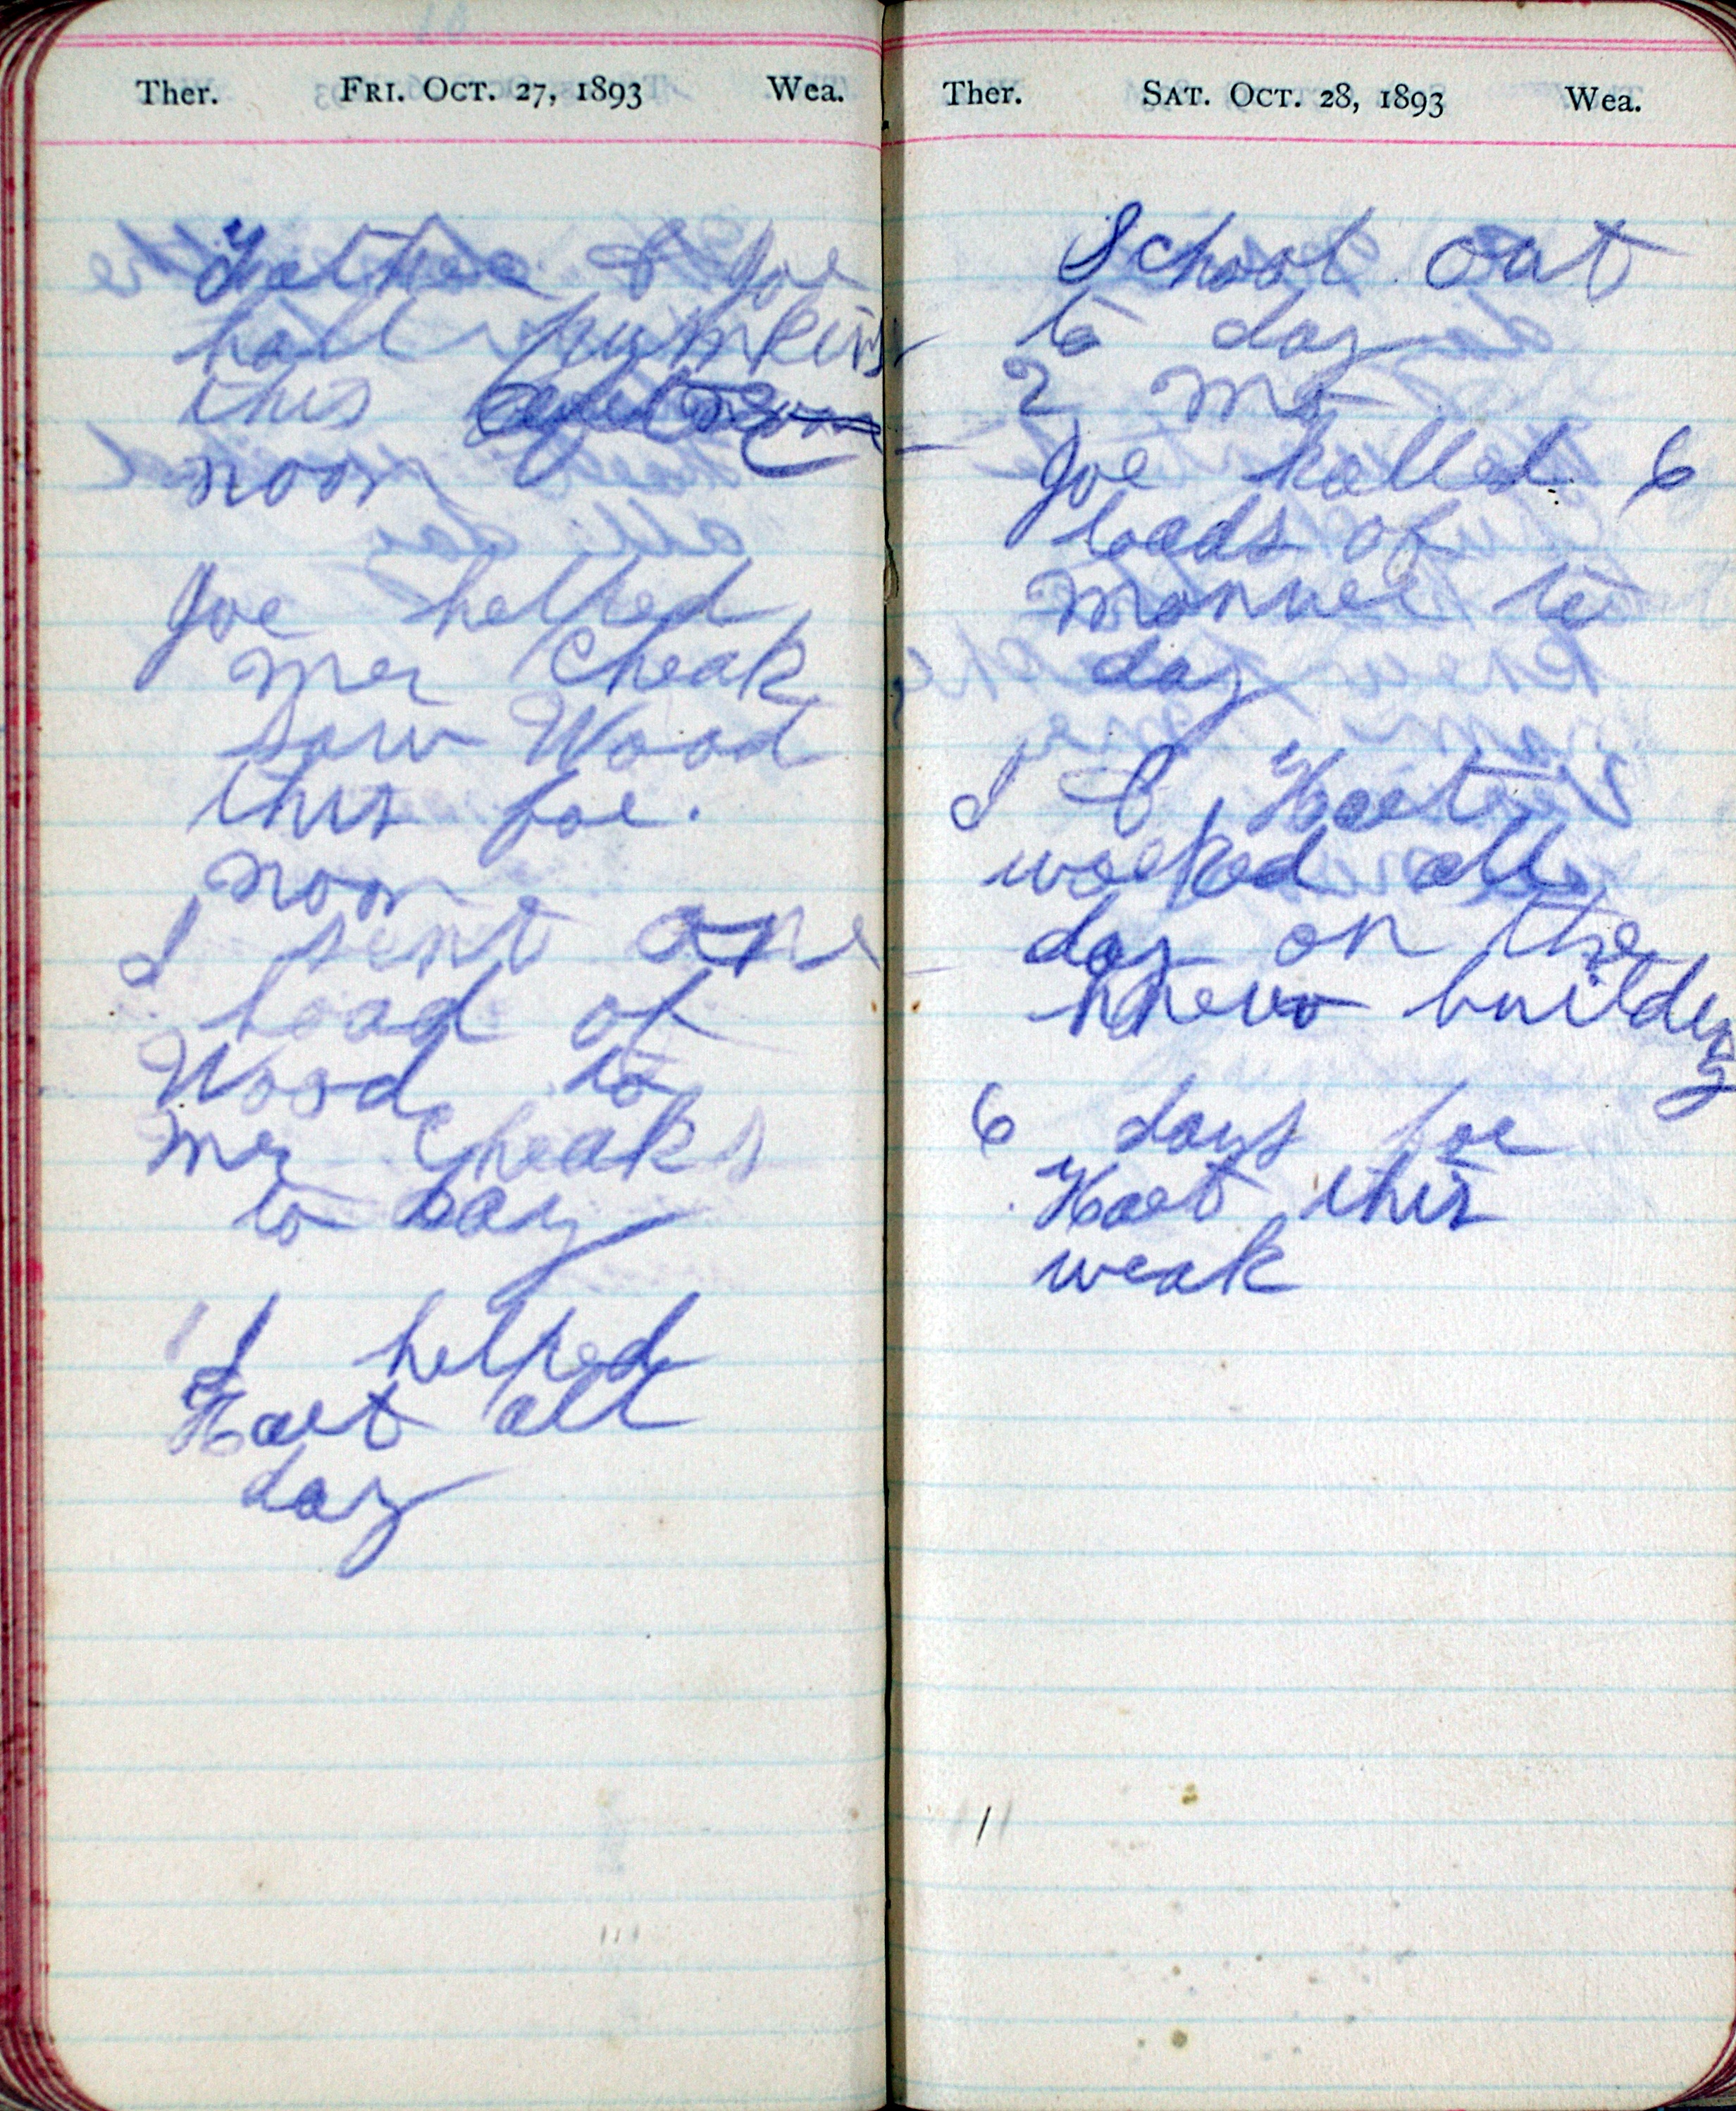 Ther. FRI. OCT. 27, 1893 Wea.
Father & Joe
hall pumkins
this after
noon
Joe helped
Mer Cheak
saw Wood
this for.
noon
I sent one
load of
Wood to
Mer Cheaks
to day
I helped
Hart all
day
Ther. SAT. OCT. 28, 1893 Wea.
School out
to day
2 mo
Joe halled 6
loads of
manuer to
day
I & Hart
worked all
day on the
knew building
6 days for
Hart this
weak